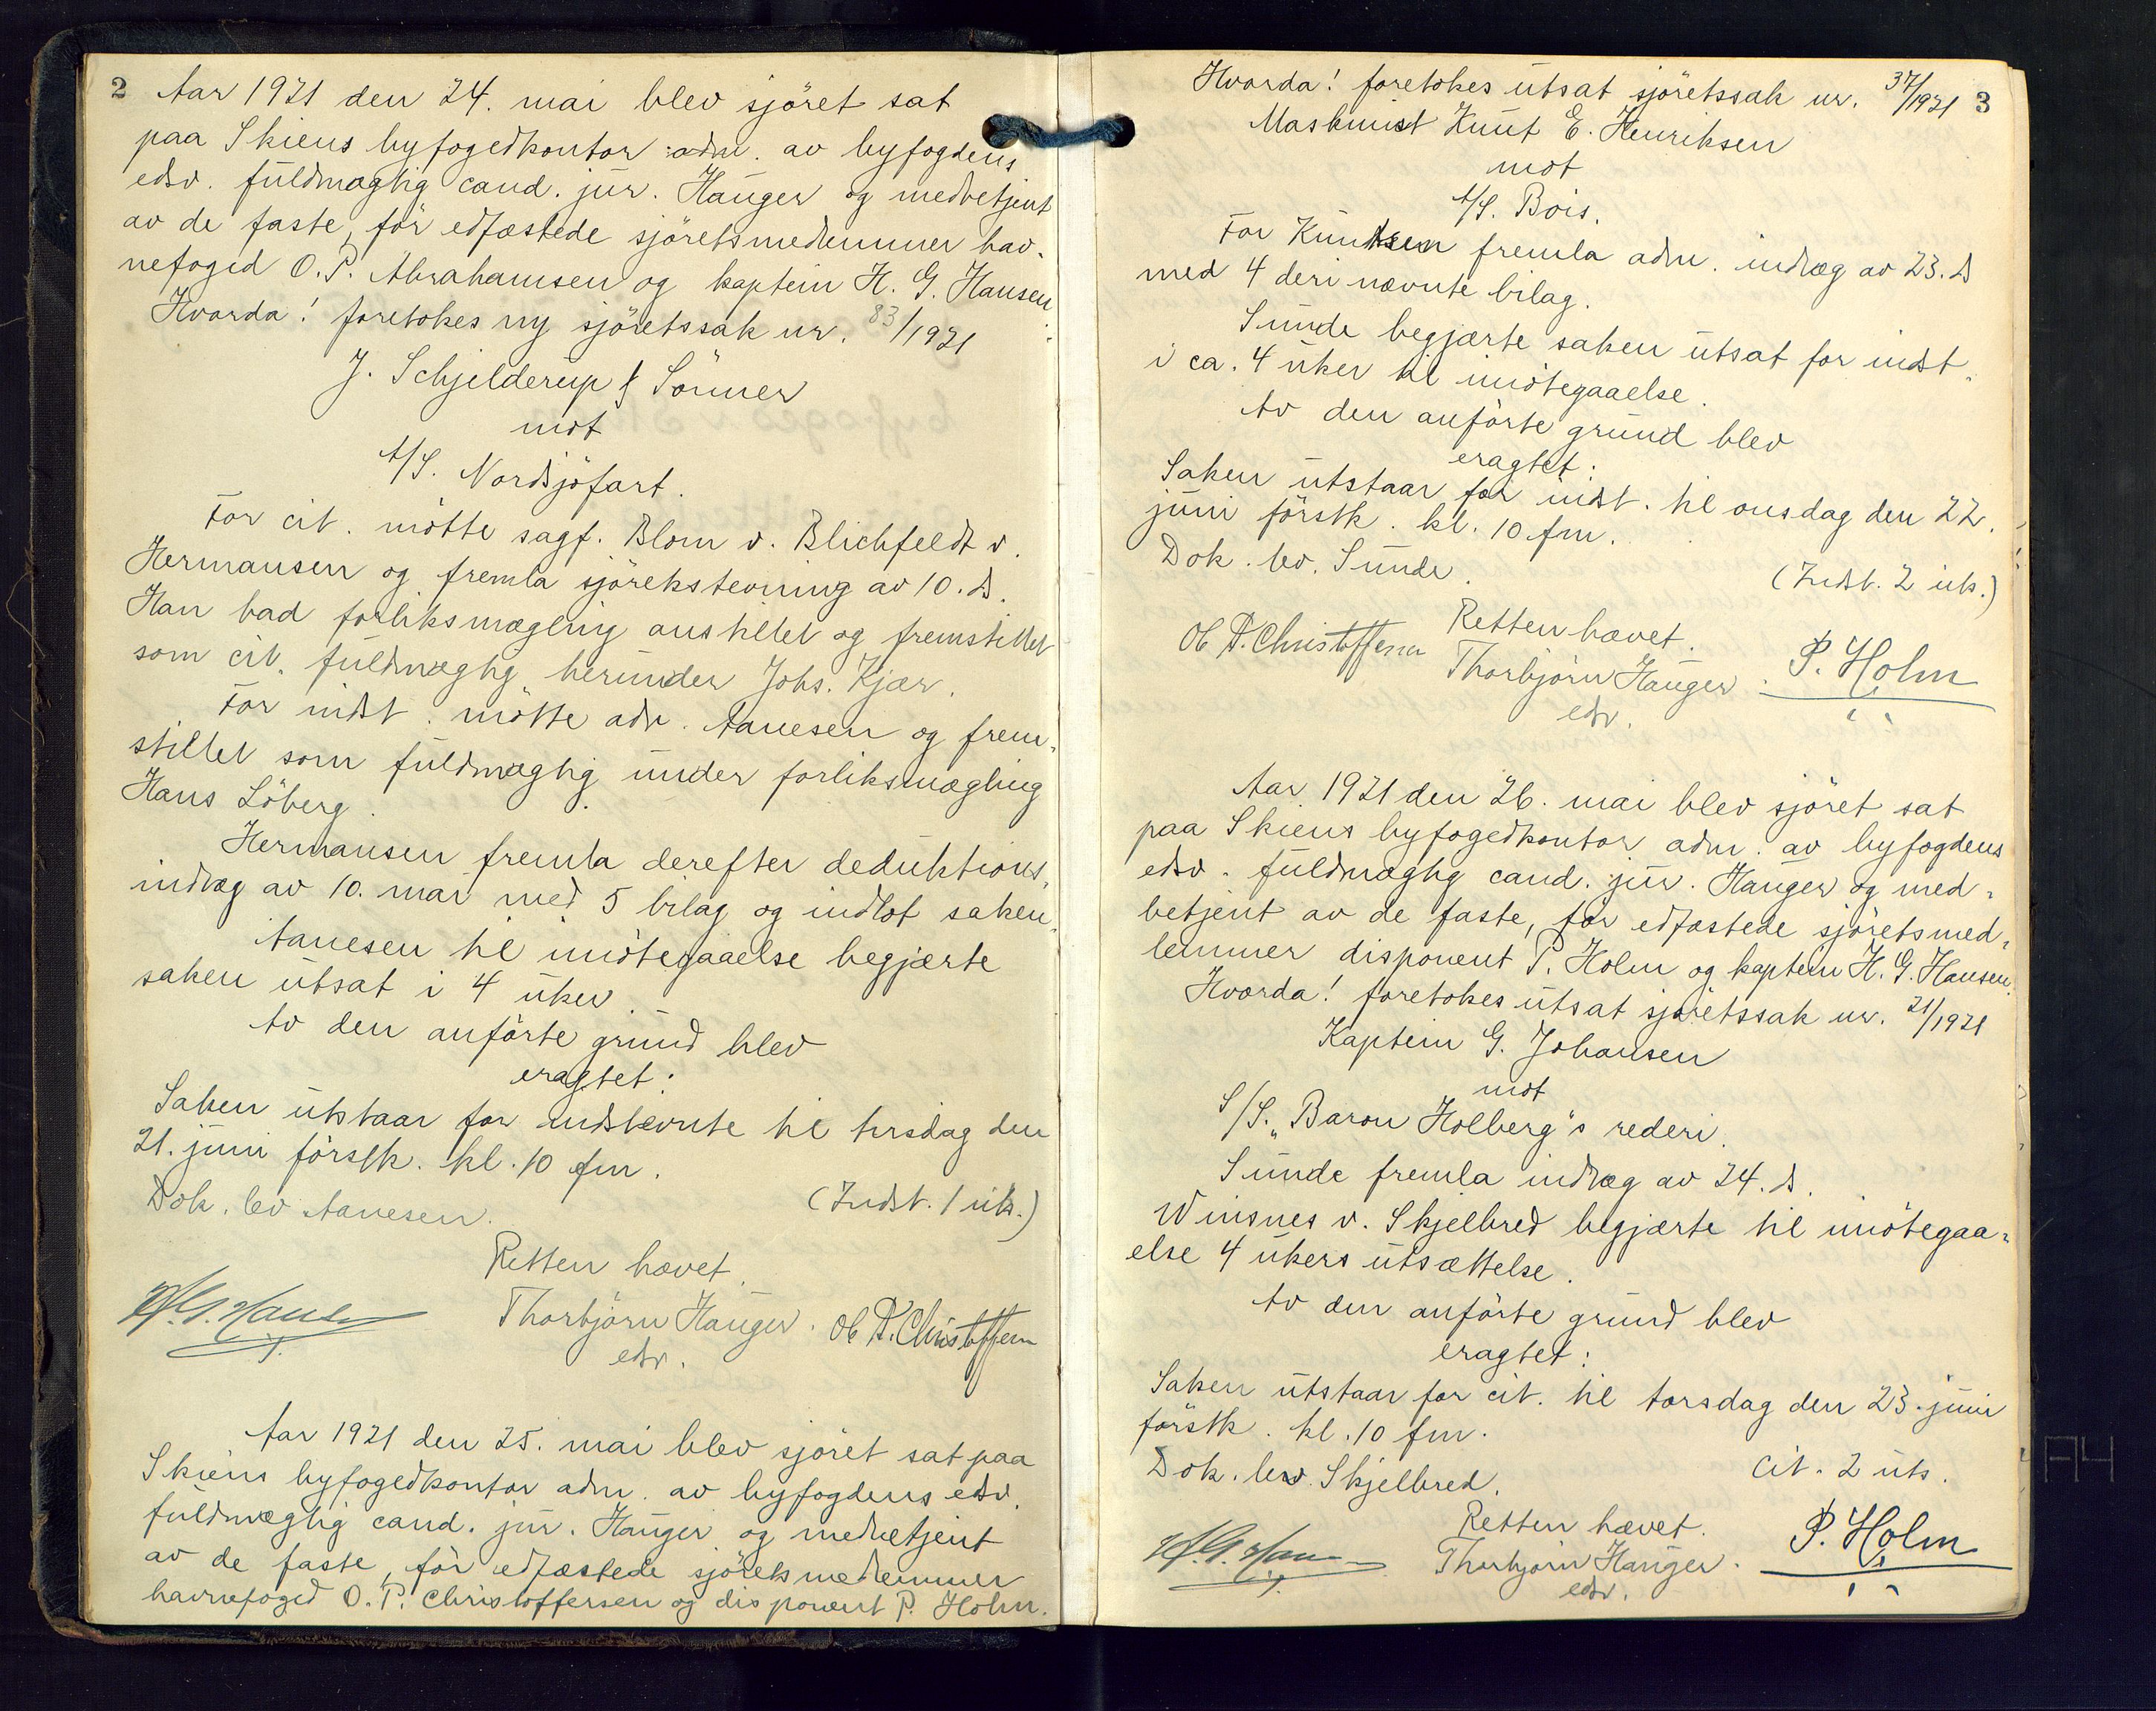 2
Aar 1921 den 24. mai blev sjöret sat
paa Skiens byfogedkontor adm. av byfogdens
edsv. fuldmægtig cand. jur. Hauger og medbetjent
av de faste, för edfæstede sjöretsmedlemmer hav-
nefoged O. P. Abrahamsen og kaptein H. G. Hansen.
Hvorda! foretokes ny sjöretssak nr. 83/1921
J. Schjelderup & Sönner
mot
A/S. Nordsjöfart.
For cit. mötte sagf. Blom v. Blichfeldt v.
Hermansen og fremla sjöretsstevning av 10. ds.
Han bad forliksmægling anstillet og fremstillet
som cit. fuldmægtig herunder Johs. Kjær.
For indst. mötte adv. Aanesen og frem-
stillet som fuldmægtig under forliksmægling
Hans Löberg.
Hermansen fremla derefter deduktions-
indlæg av 10. mai med 5 bilag og indlot saken.
Aanesen til imötegaaelse begjærte
saken utsat i 4 uker.
Av den anförte grund blev
eragtet:
Saken utstaar for indstevnte til tirsdag den
21. juni förstk. kl. 10 fm.
Dok. lev. Aanesen.
(Indst. 1 uts.)
Retten hævet.
H. G. Hansen
Thorbjörn Hauger.
edsv.
Ole P. Christoffersen
Aar 1921 den 25. mai blev sjöret sat paa
Skiens byfogedkontor adm. av byfogdens edsv.
fuldmægtig cand. jur. Hauger og medbetjent
av de faste, för edfæstede sjöretsmedlemmer
havnefoged O. P. Christoffersen og disponent P. Holm.
3
Hvorda! foretokes utsat sjöretssak nr. 37/1921
Maskinist Knut E. Henriksen
mot
A/S. Bois.
For Knudsen fremla adm. indlæg av 23. ds
med 4 deri nævnte bilag.
Sunde begjærte saken utsat for indst.
i ca. 4 uker til imötegaaelse.
Av den anförte grund blev
eragtet:
Saken utstaar for indst. til onsdag den 22.
juni förstk. kl. 10 fm.
Dok. lev. Sunde.
(Indst. 2 uts.)
Retten hævet.
Ole P. Christoffersen
Thorbjörn Hauger.
edsv.
P. Holm
Aar 1921 den 26. mai blev sjöret sat
paa Skiens byfogedkontor adm. av byfogdens
edsv. fuldmægtig cand. jur. Hauger og med-
betjent av de faste, för edfæstede sjöretsmed-
lemmer disponent P. Holm og kaptein H. G. Hansen.
Hvorda! foretokes utsat sjöretssak nr. 21/1921
Kaptein G. Johansen
mot
S/S. "Baron Holberg"s rederi.
Sunde fremla indlæg av 24. ds.
Winsnes v. Skjelbred begjærte til imötegaa-
else 4 ukers utsættelse.
Av den anförte grund blev
eragtet:
Saken utstaar for cit. til torsdag den 23. juni
förstk. kl. 10 fm.
Dok. lev. Skjelbred.
Cit. 2 uts.
Retten hævet.
H. G. Hansen
Thorbjörn Hauger.
edsv.
P. Holm